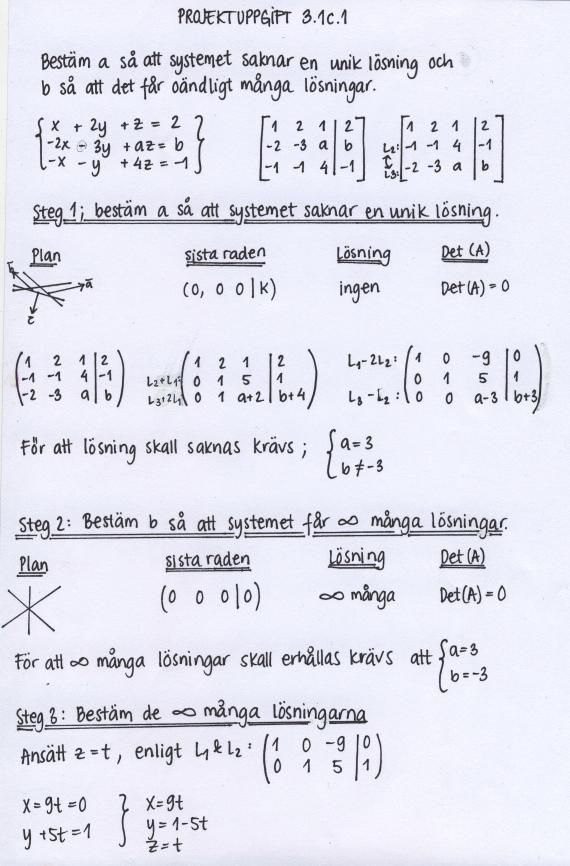 PROJEKTUPPGIFT 3.1c.1
Bestäm a så att systemet saknar en unik lösning och
b så att det får oändligt många lösningar.
{ x + 2y + z = 2 } [ 1 2 1 | 2 ] [ 1 2 1 | 2 ]
{ -2x - 3y + az = b } [ -2 -3 a | b ] L2: [ -1 -1 4 | -1 ]
{ -x - y + 4z = -1 } [ -1 -1 4 | -1 ] ↕ L3: [ -2 -3 a | b ]
Steg 1; bestäm a så att systemet saknar en unik lösning.
Plan sista raden Lösning Det (A)
ā (0, 0 0 | K) ingen Det(A) = 0
c̄
( 1 2 1 | 2 ) ( 1 2 1 | 2 ) L1-2L2: ( 1 0 -9 | 0 )
( -1 -1 4 | -1 ) L2+L1: ( 0 1 5 | 1 ) ( 0 1 5 | 1 )
( -2 -3 a | b ) L3+2L1 ( 0 1 a+2 | b+4 ) L3-L2: ( 0 0 a-3 | b+3 )
För att lösning skall saknas krävs ; { a = 3
{ b ≠ -3
Steg 2: Bestäm b så att systemet får ∞ många lösningar.
Plan sista raden Lösning Det (A)
(0 0 0 | 0) ∞ många Det(A) = 0
För att ∞ många lösningar skall erhållas krävs att { a = 3
{ b = -3
Steg 3: Bestäm de ∞ många lösningarna
Ansätt z = t, enligt L1 & L2: ( 1 0 -9 | 0 )
( 0 1 5 | 1 )
x = 9t = 0 } x = 9t
y + 5t = 1 } y = 1 - 5t
z = t